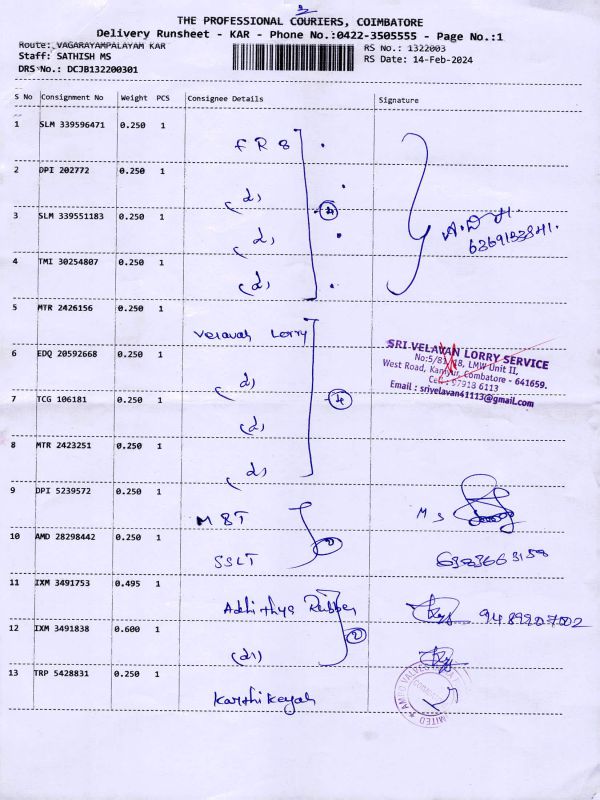 THE PROFESSIONAL COURIERS, COIMBATORE
Delivery Runsheet - KAR - Phone No.:0422-3505555 - Page No.:1
Route: VAGARAYAMPALAYAM KAR
RS No.: 1322003
Staff: SATHISH MS
RS Date: 14-Feb-2024
DRS No.: DCJB132200301
S No Consignment No Weight PCS Consignee Details Signature
1 SLM 339596471 0.250 1
F R 8
2 DPI 202772 0.250 1
(d)
3 SLM 339551183 0.250 1
(d)
4 TMI 30254807 0.250 1
(d)
5 MTR 2426156 0.250 1
Velavah Lorry
SRI VELAVAN LORRY SERVICE
6 EDQ 20592668 0.250 1
LMW Unit II,
West Road, Kaniyur, Combatore - 641659.
(d)
Cell: 97918 6113
7 TCG 106181 0.250 1
Email : srivelavan41113@gmail.com
(d)
8 MTR 2423251 0.250 1
(d)
9 DPI 5239572 0.250 1
M S T M S
10 AMD 28298442 0.250 1
SSLT
11 IXM 3491753 0.495 1
Adhithya Rubber
12 IXM 3491838 0.600 1
(d)
13 TRP 5428831 0.250 1
Karthikeyah